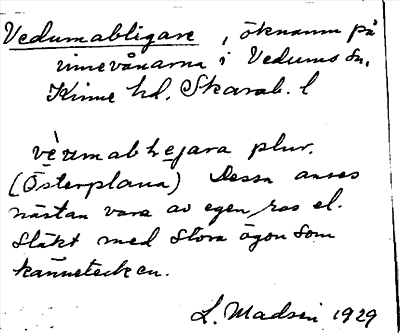 Vedumabligare, öknamn på
innevånarna i Vedums sn,
Kinne hd. Skarab. l
plur.
(Österplana) Dessa anses
nästan vara av egen ras el.
släkt med stora ögon som
kännetecken.
L. Madsén 1929